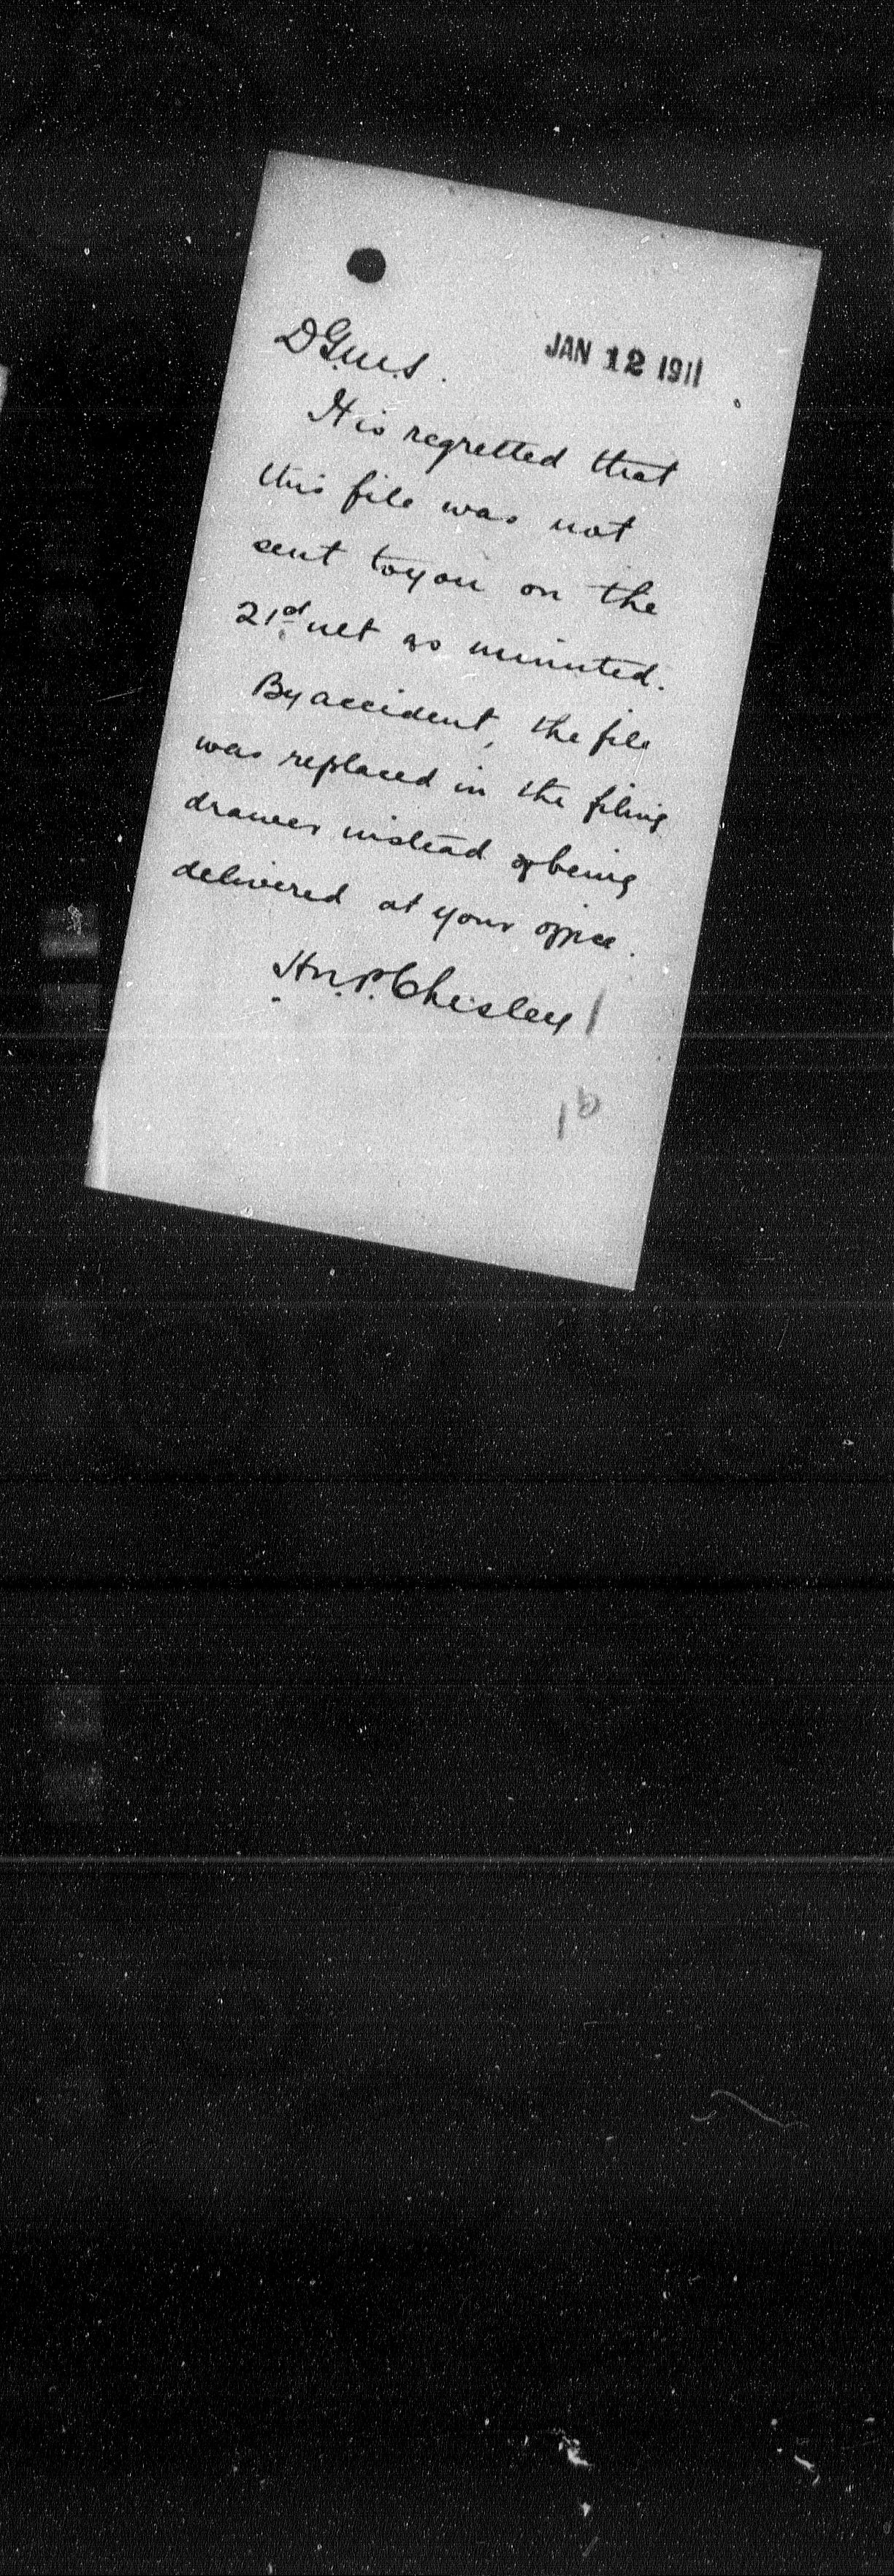 D.G.M.S. JAN 12 1911
It is regretted that
this file was not
sent to you on the
21st ult as minuted.
By accident, the file
was replaced in the filing
drawer instead of being
delivered at your office.
Chisley